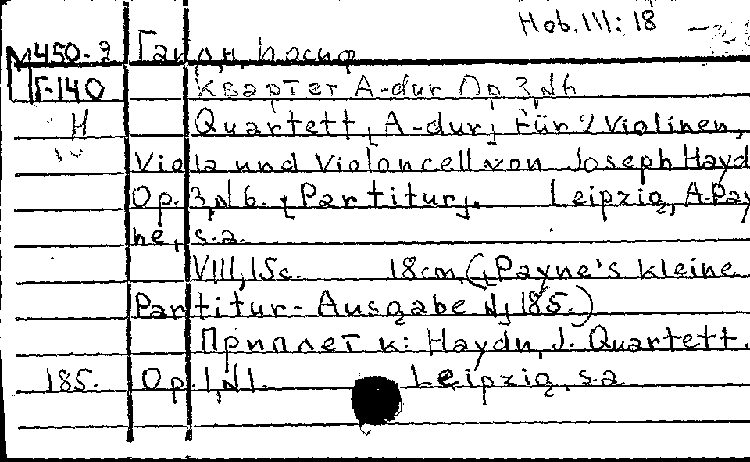 Hob. III: 18
М450-2 Гайдн, Иосиф
Г-140 Квартет A-dur Op 3,№6
Н Quartett [A-dur] für 2 Violinen,
Viola und Violoncell von Joseph Hayd
Op. 3,№6. [Partitur]. Leipzig, A. Pay
ne, s.a.
VIII, 15c. 18cm. ([Payne's kleine
Partitur-Ausgabe №] 185.)
Приплет к: Haydn, J. Quartett.
185. Op. 1, №1. Leipzig, s.a.